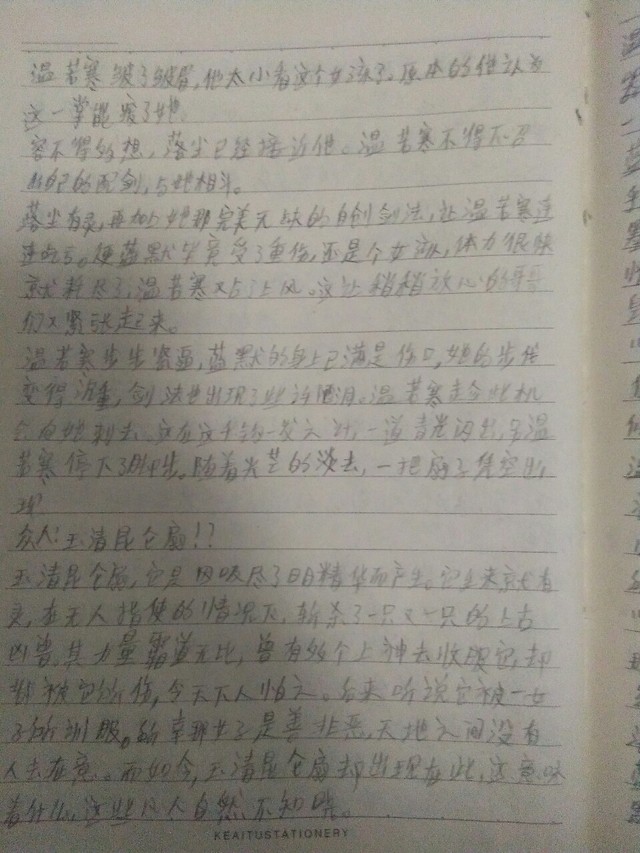 温若寒皱了皱眉,他太小看这个女孩了。原本的他认为
这一掌能废了她。
容不得多想,落尘已经接近他。温若寒不得不召
自己的配剑,与她相斗。
落尘有灵,再加上她那完美无缺的自创剑法,让温若寒连
连吃亏。但蓝默毕竟受了重伤,还是个女孩,体力很快
就耗尽了,温若寒又占了上风。这让稍稍放心的哥哥
们又紧张起来。
温若寒步步紧逼,蓝默的身上已满是伤口,她的步伐
变得沉重,剑法也出现了些许漏洞。温若寒趁此机
会向她刺去。这在这千钧一发之时,一道青光闪出,令温
若寒停下了脚步。随着光芒的淡去,一把扇子凭空出
现!
众人:玉清昆仑扇!?
玉清昆仑扇,它是因吸尽了日月精华而产生。它生来就有
灵,在无人指使的情况下,斩杀了一只又一只的上古
凶兽,其力量霸道无比,曾有多个上神去收服它,却
都被它所伤,令天下人怕之。后来听说它被一女
子所训服。所幸那女子是善非恶,天地之间没有
人去在意。而如今,玉清昆仑扇却出现在此,这意味
着什么,这些凡人自然不知晓。
KEAITUSTATIONERY